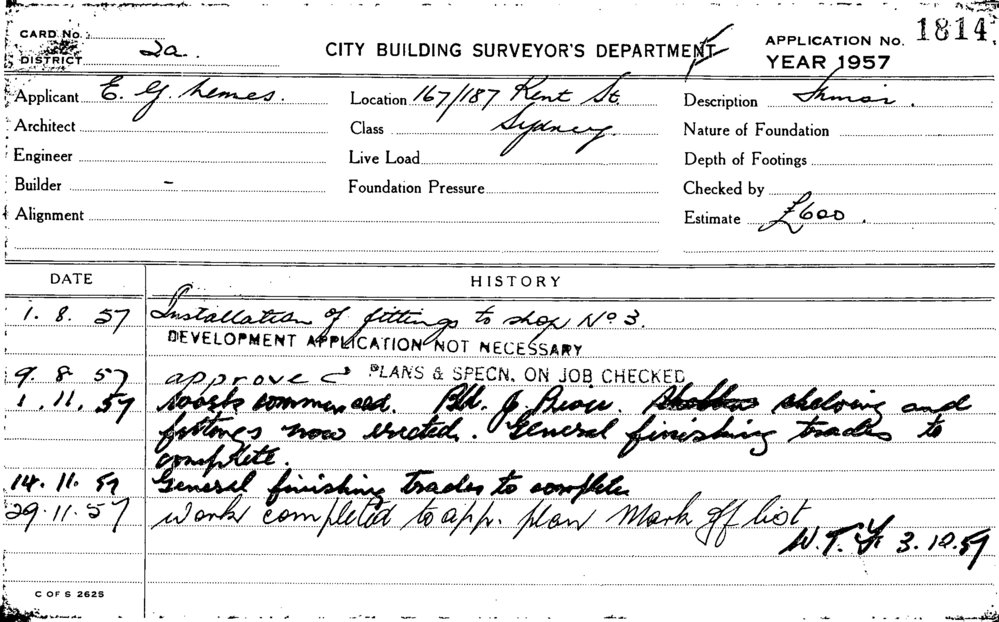 CARD No.
DISTRICT 2a.
CITY BUILDING SURVEYOR'S DEPARTMENT
APPLICATION No. 1814
YEAR 1957
Applicant E. G. Nemes.
Location 167/187 Kent St.
Description
Architect
Class Sydney.
Nature of Foundation
Engineer
Live Load
Depth of Footings
Builder -
Foundation Pressure
Checked by
Alignment
Estimate £600.
DATE
HISTORY
1. 8. 57 Installation of fittings to shop No 3.
DEVELOPMENT APPLICATION NOT NECESSARY
9. 8. 57 approved PLANS & SPECN. ON JOB CHECKED
1. 11. 57 Works commenced. Bld. J. shelving and
fittings now erected. General finishing trades to
complete.
14. 11. 57 General finishing trades to complete
29. 11. 57 work completed to app. plan Mark off list
W.T. 3.12.57
C OF S 2625